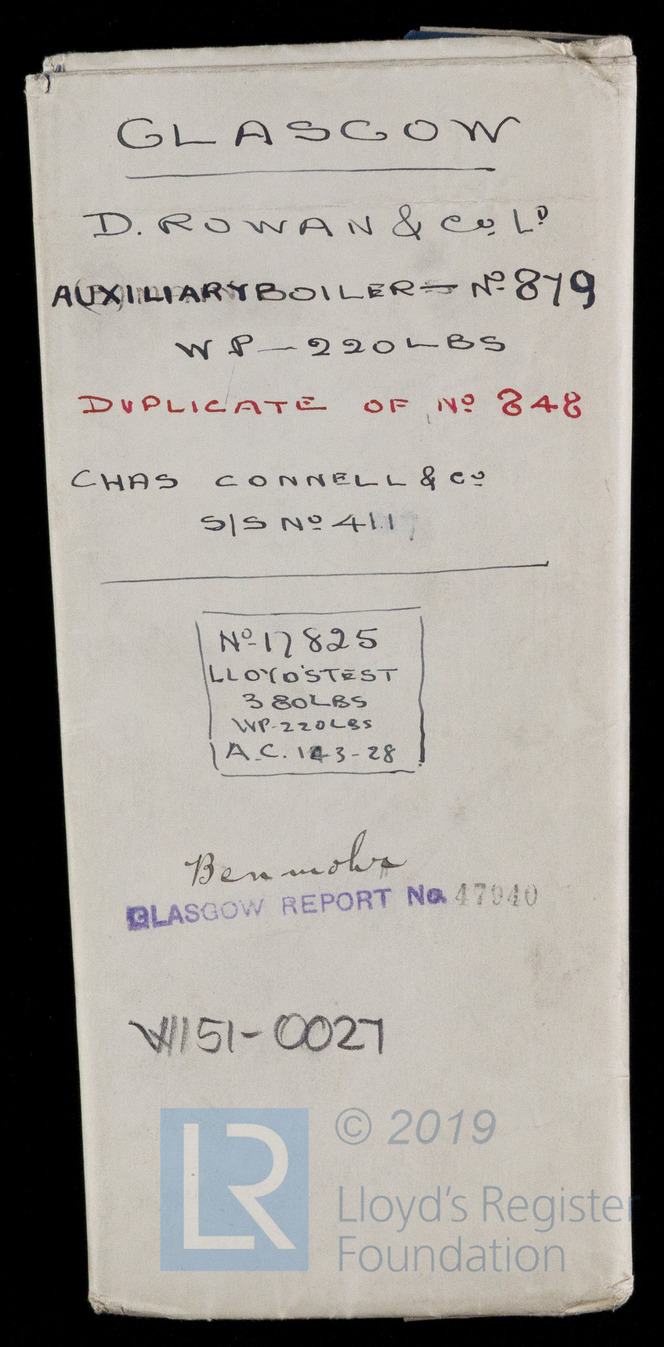 GLASGOW
D. ROWAN & Co. LD
AUXILIARY BOILER - No 879
WP - 220 LBS
DUPLICATE OF No 848
CHAS CONNELL & Co
S/S No 411
No 17825
LLOYD'S TEST
380 LBS
WP - 220 LBS
A.C. 143-28
Benmohr
GLASGOW REPORT No. 47940
W151-0027
LR
© 2019
Lloyd's Register
Foundation